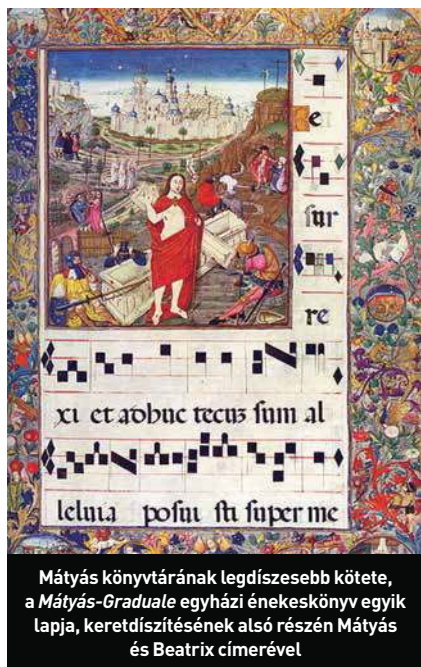 e
sur
re
xi et adhuc tecuz sum al
leluia posui sti super me
Mátyás könyvtárának legdíszesebb kötete,
a Mátyás-Graduale egyházi énekeskönyv egyik
lapja, keretdíszítésének alsó részén Mátyás
és Beatrix címerével